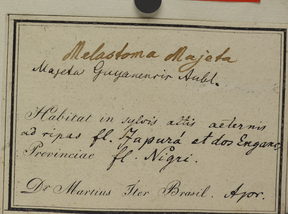 Melastoma Majeta
Majeta Guyanensis Aubl.
Habitat in sylvis altis aeternis
ad ripas fl. Japurá et dos Enganos
Provinciae fl. Nigri.
Dr Martius Iter Brasil.